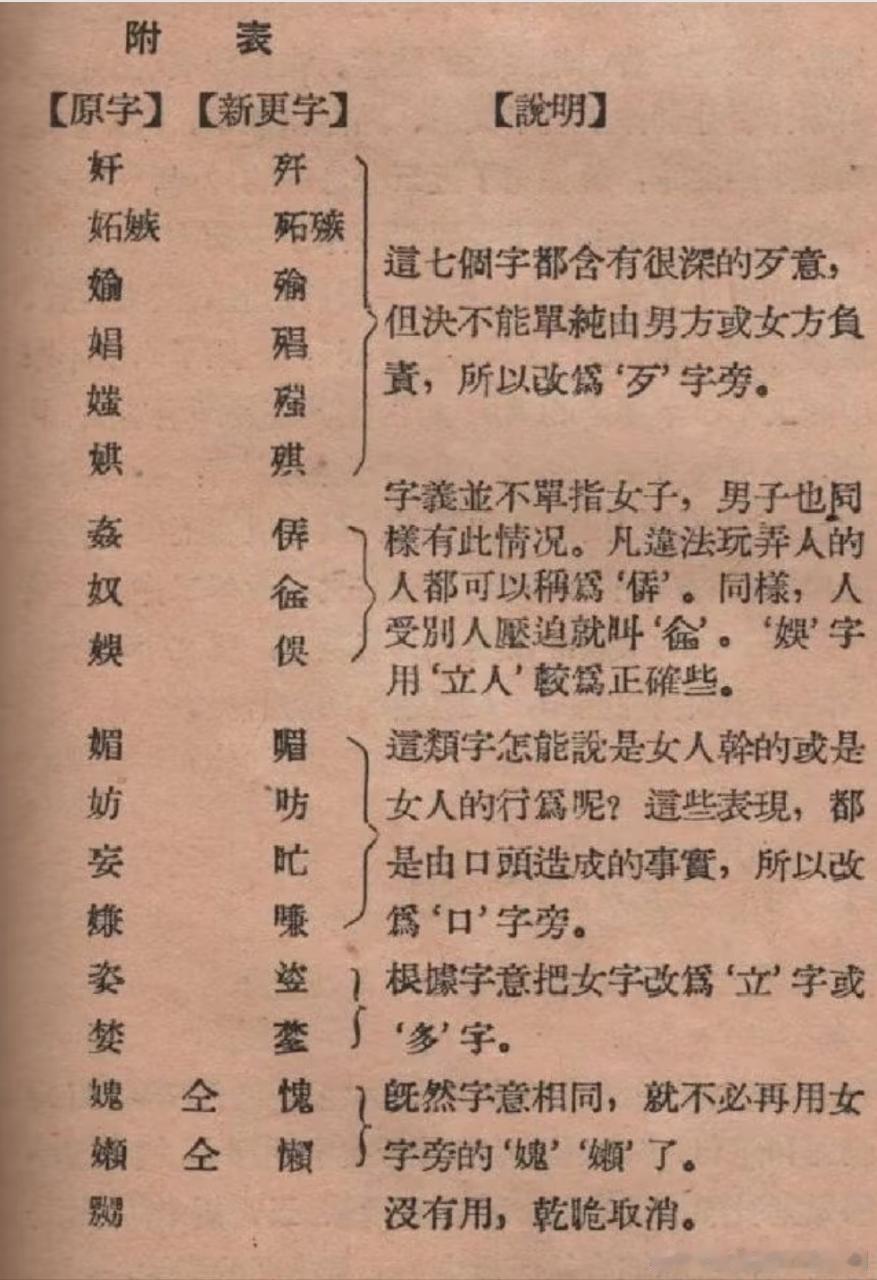 附 表
【原字】 【新更字】 【說明】
奸
妬嫉
媮
娼
媸
娸
這七個字都含有很深的歹意，
但決不能單純由男方或女方負
責，所以改爲‘歹’字旁。
姦
奴
娛 俁
字義並不單指女子，男子也同
樣有此情况。凡違法玩弄人的
人都可以稱爲‘ ’。同樣，人
受別人壓迫就叫‘ ’。‘娛’字
用‘立人’較爲正確些。
媚
妨
妄
嫌 嗛
這類字怎能說是女人幹的或是
女人的行爲呢？這些表現，都
是由口頭造成的事實，所以改
爲‘口’字旁。
姿
婪
根據字意把女字改爲‘立’字或
‘多’字。
媿 仝 愧
嬾 仝 懶
既然字意相同，就不必再用女
字旁的‘媿’‘嬾’了。
嬲 沒有用，乾脆取消。